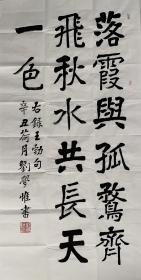 落霞與孤鶩齊
飛秋水共長天
一色
右錄王勃句
辛丑荷月劉學惟書